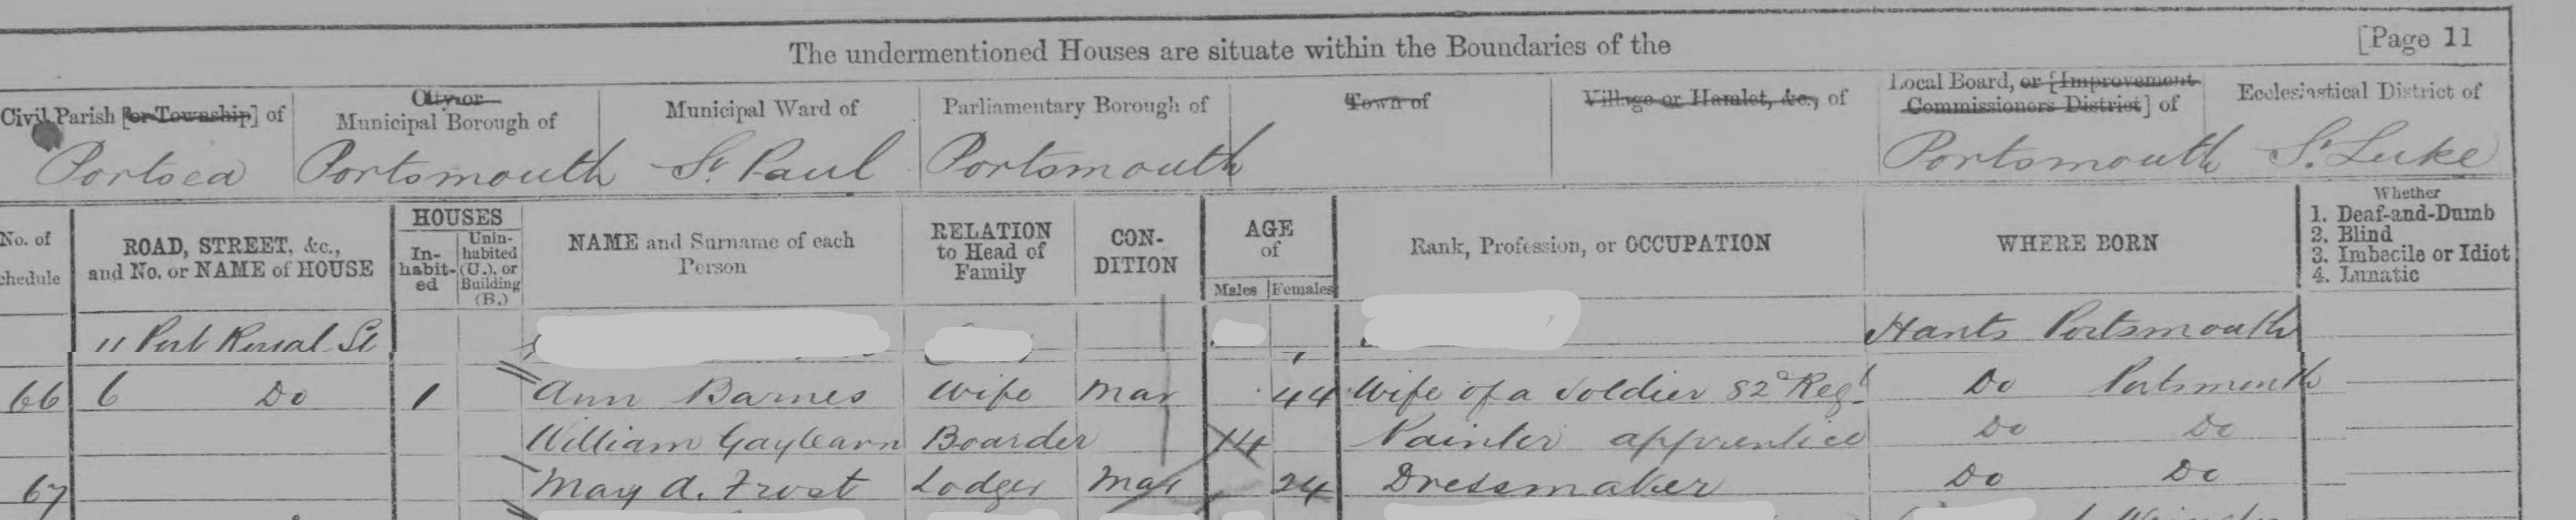 The undermentioned Houses are situate within the Boundaries of the [Page 11
Civil Parish [or Township] of City or Municipal Borough of Municipal Ward of Parliamentary Borough of Town of Village or Hamlet, &c., of Local Board, or [Improvement Commissioners District] of Ecclesiastical District of
Portsea Portsmouth St. Paul Portsmouth Portsmouth St. Luke
No. of chedule ROAD, STREET, &c., and No. or NAME of HOUSE HOUSES In-habit-ed Unin-habited (U.), or Building (B.) NAME and Surname of each Person RELATION to Head of Family CON-DITION AGE of Males Females Rank, Profession, or OCCUPATION WHERE BORN Whether 1. Deaf-and-Dumb 2. Blind 3. Imbecile or Idiot 4. Lunatic
11 Port Royal St Hants Portsmouth
66 6 Do 1 Ann Barnes Wife Mar 44 Wife of a Soldier 82d Regt Do Portsmouth
William Boarder 14 Painter apprentice Do Do
67 Mary A. Frost Lodger Mar 24 Dressmaker Do Do